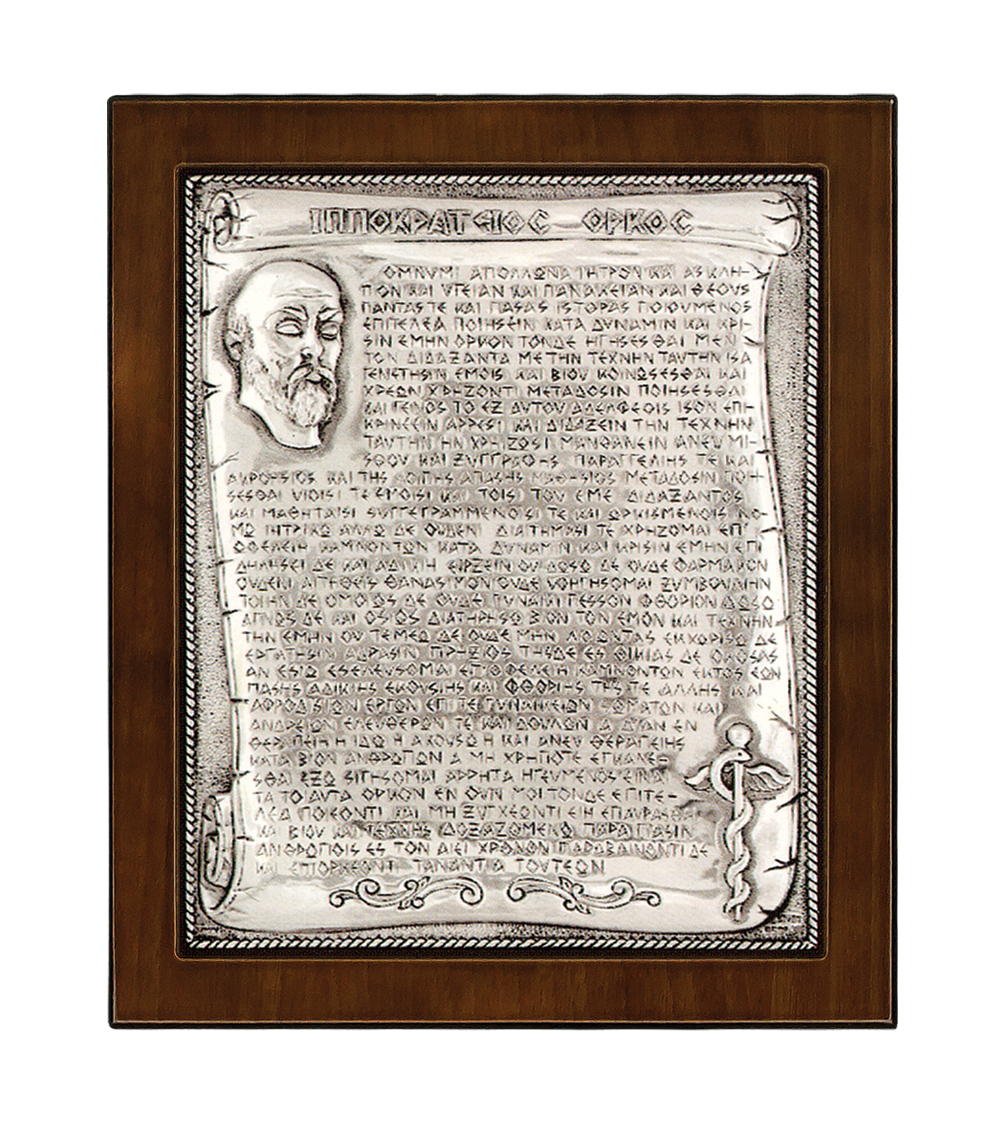 ΙΠΠΟΚΡΑΤΕΙΟΣ ΟΡΚΟΣ
ΟΜΝΥΜΙ ΑΠΟΛΛΩΝΑ ΙΗΤΡΟΝ ΚΑΙ ΑΣΚΛΗ-
ΠΙΟΝ ΚΑΙ ΥΓΕΙΑΝ ΚΑΙ ΠΑΝΑΚΕΙΑΝ ΚΑΙ ΘΕΟΥΣ
ΠΑΝΤΑΣ ΤΕ ΚΑΙ ΠΑΣΑΣ ΙΣΤΟΡΑΣ ΠΟΙΟΥΜΕΝΟΣ
ΕΠΙΤΕΛΕΑ ΠΟΙΗΣΕΙΝ ΚΑΤΑ ΔΥΝΑΜΙΝ ΚΑΙ ΚΡΙ-
ΣΙΝ ΕΜΗΝ ΟΡΚΟΝ ΤΟΝΔΕ ΗΓΗΣΕΣΘΑΙ ΜΕΝ
ΤΟΝ ΔΙΔΑΞΑΝΤΑ ΜΕ ΤΗΝ ΤΕΧΝΗΝ ΤΑΥΤΗΝ ΙΣΑ
ΓΕΝΕΤΗΣΙΝ ΕΜΟΙΣ ΚΑΙ ΒΙΟΥ ΚΟΙΝΩΣΕΣΘΑΙ ΚΑΙ
ΧΡΕΩΝ ΧΡΗΖΟΝΤΙ ΜΕΤΑΔΟΣΙΝ ΠΟΙΗΣΕΣΘΑΙ
ΚΑΙ ΓΕΝΟΣ ΤΟ ΕΞ ΑΥΤΟΥ ΑΔΕΛΦΕΟΙΣ ΙΣΟΝ ΕΠΙ-
ΚΡΙΝΕΕΙΝ ΑΡΡΕΣΙ ΚΑΙ ΔΙΔΑΞΕΙΝ ΤΗΝ ΤΕΧΝΗΝ
ΤΑΥΤΗΝ ΗΝ ΧΡΗΖΩΣΙ ΜΑΝΘΑΝΕΙΝ ΑΝΕΥ ΜΙ-
ΣΘΟΥ ΚΑΙ ΞΥΓΓΡΑΦΗΣ ΠΑΡΑΓΓΕΛΙΗΣ ΤΕ ΚΑΙ
ΑΚΡΟΗΣΙΟΣ ΚΑΙ ΤΗΣ ΛΟΙΠΗΣ ΑΠΑΣΗΣ ΜΑΘΗΣΙΟΣ ΜΕΤΑΔΟΣΙΝ ΠΟΙΗ-
ΣΕΣΘΑΙ ΥΙΟΙΣΙ ΤΕ ΕΜΟΙΣΙ ΚΑΙ ΤΟΙΣΙ ΤΟΥ ΕΜΕ ΔΙΔΑΞΑΝΤΟΣ
ΚΑΙ ΜΑΘΗΤΑΙΣΙ ΣΥΓΓΕΓΡΑΜΜΕΝΟΙΣΙ ΤΕ ΚΑΙ ΩΡΚΙΣΜΕΝΟΙΣ ΝΟ-
ΜΩ ΙΗΤΡΙΚΩ ΑΛΛΩ ΔΕ ΟΥΔΕΝΙ ΔΙΑΙΤΗΜΑΣΙ ΤΕ ΧΡΗΣΟΜΑΙ ΕΠ'
ΩΦΕΛΕΙΗ ΚΑΜΝΟΝΤΩΝ ΚΑΤΑ ΔΥΝΑΜΙΝ ΚΑΙ ΚΡΙΣΙΝ ΕΜΗΝ ΕΠΙ
ΔΗΛΗΣΕΙ ΔΕ ΚΑΙ ΑΔΙΚΙΗ ΕΙΡΞΕΙΝ ΟΥ ΔΩΣΩ ΔΕ ΟΥΔΕ ΦΑΡΜΑΚΟΝ
ΟΥΔΕΝΙ ΑΙΤΗΘΕΙΣ ΘΑΝΑΣΙΜΟΝ ΟΥΔΕ ΥΦΗΓΗΣΟΜΑΙ ΞΥΜΒΟΥΛΙΗΝ
ΤΟΙΗΝΔΕ ΟΜΟΙΩΣ ΔΕ ΟΥΔΕ ΓΥΝΑΙΚΙ ΠΕΣΣΟΝ ΦΘΟΡΙΟΝ ΔΩΣΩ
ΑΓΝΩΣ ΔΕ ΚΑΙ ΟΣΙΩΣ ΔΙΑΤΗΡΗΣΩ ΒΙΟΝ ΤΟΝ ΕΜΟΝ ΚΑΙ ΤΕΧΝΗΝ
ΤΗΝ ΕΜΗΝ ΟΥ ΤΕΜΕΩ ΔΕ ΟΥΔΕ ΜΗΝ ΛΙΘΙΩΝΤΑΣ ΕΚΧΩΡΗΣΩ ΔΕ
ΕΡΓΑΤΗΣΙΝ ΑΝΔΡΑΣΙΝ ΠΡΗΞΙΟΣ ΤΗΣΔΕ ΕΣ ΟΙΚΙΑΣ ΔΕ ΟΚΟΣΑΣ
ΑΝ ΕΣΙΩ ΕΣΕΛΕΥΣΟΜΑΙ ΕΠ' ΩΦΕΛΕΙΗ ΚΑΜΝΟΝΤΩΝ ΕΚΤΟΣ ΕΩΝ
ΠΑΣΗΣ ΑΔΙΚΙΗΣ ΕΚΟΥΣΙΗΣ ΚΑΙ ΦΘΟΡΙΗΣ ΤΗΣ ΤΕ ΑΛΛΗΣ ΚΑΙ
ΑΦΡΟΔΙΣΙΩΝ ΕΡΓΩΝ ΕΠΙ ΤΕ ΓΥΝΑΙΚΕΙΩΝ ΣΩΜΑΤΩΝ ΚΑΙ
ΑΝΔΡΕΙΩΝ ΕΛΕΥΘΕΡΩΝ ΤΕ ΚΑΙ ΔΟΥΛΩΝ Α Δ' ΑΝ ΕΝ
ΘΕΡΑΠΕΙΗ Η ΙΔΩ Η ΑΚΟΥΣΩ Η ΚΑΙ ΑΝΕΥ ΘΕΡΑΠΕΙΗΣ
ΚΑΤΑ ΒΙΟΝ ΑΝΘΡΩΠΩΝ Α ΜΗ ΧΡΗ ΠΟΤΕ ΕΚΚΑΛΕΕ-
ΣΘΑΙ ΕΞΩ ΣΙΓΗΣΟΜΑΙ ΑΡΡΗΤΑ ΗΓΕΥΜΕΝΟΣ ΕΙΝΑΙ
ΤΑ ΤΟΙΑΥΤΑ ΟΡΚΟΝ ΕΝ ΟΥΝ ΜΟΙ ΤΟΝΔΕ ΕΠΙΤΕ-
ΛΕΑ ΠΟΙΕΟΝΤΙ ΚΑΙ ΜΗ ΞΥΓΧΕΟΝΤΙ ΕΙΗ ΕΠΑΥΡΑΣΘΑΙ
ΚΑΙ ΒΙΟΥ ΚΑΙ ΤΕΧΝΗΣ ΔΟΞΑΖΟΜΕΝΩ ΠΑΡΑ ΠΑΣΙΝ
ΑΝΘΡΩΠΟΙΣ ΕΣ ΤΟΝ ΑΙΕΙ ΧΡΟΝΟΝ ΠΑΡΑΒΑΙΝΟΝΤΙ ΔΕ
ΚΑΙ ΕΠΙΟΡΚΕΟΝΤΙ ΤΑΝΑΝΤΙΑ ΤΟΥΤΕΩΝ